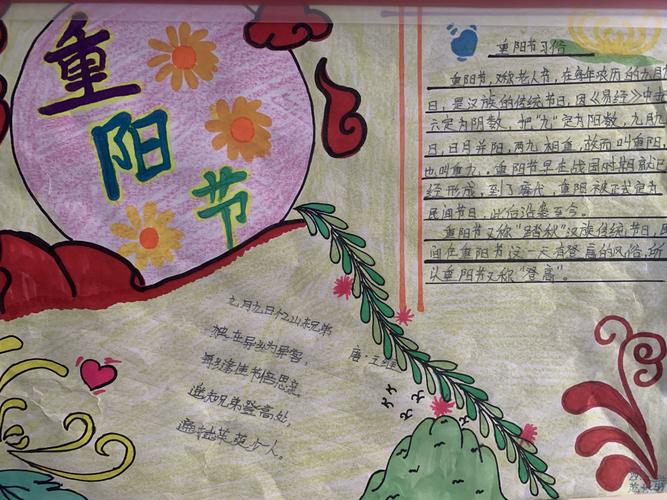 重阳节
九月九日忆山东兄弟
独在异乡为异客,
每逢佳节倍思亲。
唐·王维
遥知兄弟登高处,
遍插茱萸少一人。
重阳节习俗
重阳节,又称老人节,在每年农历的九月
日,是汉族的传统节日,因《易经》中
六定为阴数,把"九"定为阳数,九月九
日,日月并阳,两九相重,故而叫重阳,
也叫重九。重阳节早在战国时期就已
经形成,到了唐代,重阳被正式定为
民间节日,此后沿袭至今。
重阳节又称"踏秋"汉族传统节日,民
间在重阳节这一天有登高的风俗,所
以重阳节又称"登高"。